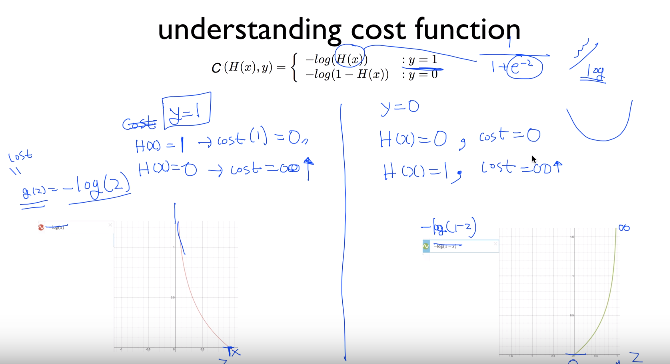 understanding cost function
C(H(x), y) = { −log(H(x)) : y = 1
−log(1 − H(x)) : y = 0
1
1+e^-z
log
Cost y=1
H(x)=1 → cost(1)=0
H(x)=0 → cost=∞↑
cost
=
g(z)=-log(z)
y=0
H(x)=0, cost=0
H(x)=1, cost=∞↑
-log(1-z)
∞
x
0
Z